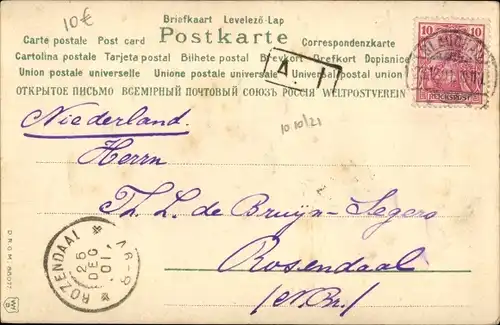 10€
Briefkaart Levelező-Lap
Postkarte
Carte postale Post card
Correspondenzkarte
Cartolina postale Tarjeta postal Bilhete postal Brevkort Brefkort Dopisnice
Union postale universelle Unione postale universale Universal postal union
ОТКРЫТОЕ ПИСЬМО ВСЕМІРНЫЙ ПОЧТОВЫЙ СОЮЗЪ РОССІЯ WELTPOSTVEREIN
10 10
REICHSPOST
A.
10 10/21
Niederland.
Herrn
Th. L. de Bruijn-Segers
Rosendaal
(N. Br.)
ROZENDAAL
25
DEC
01
D.R.G.M.